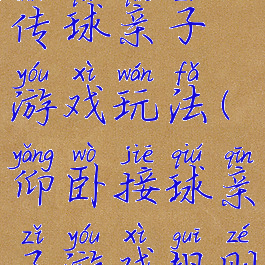 传球亲子
yóu xì wán fǎ
游戏玩法(
yǎng wò jiē qiú qīn
仰卧接球亲
zǐ yóu xì guī zé
子游戏规则